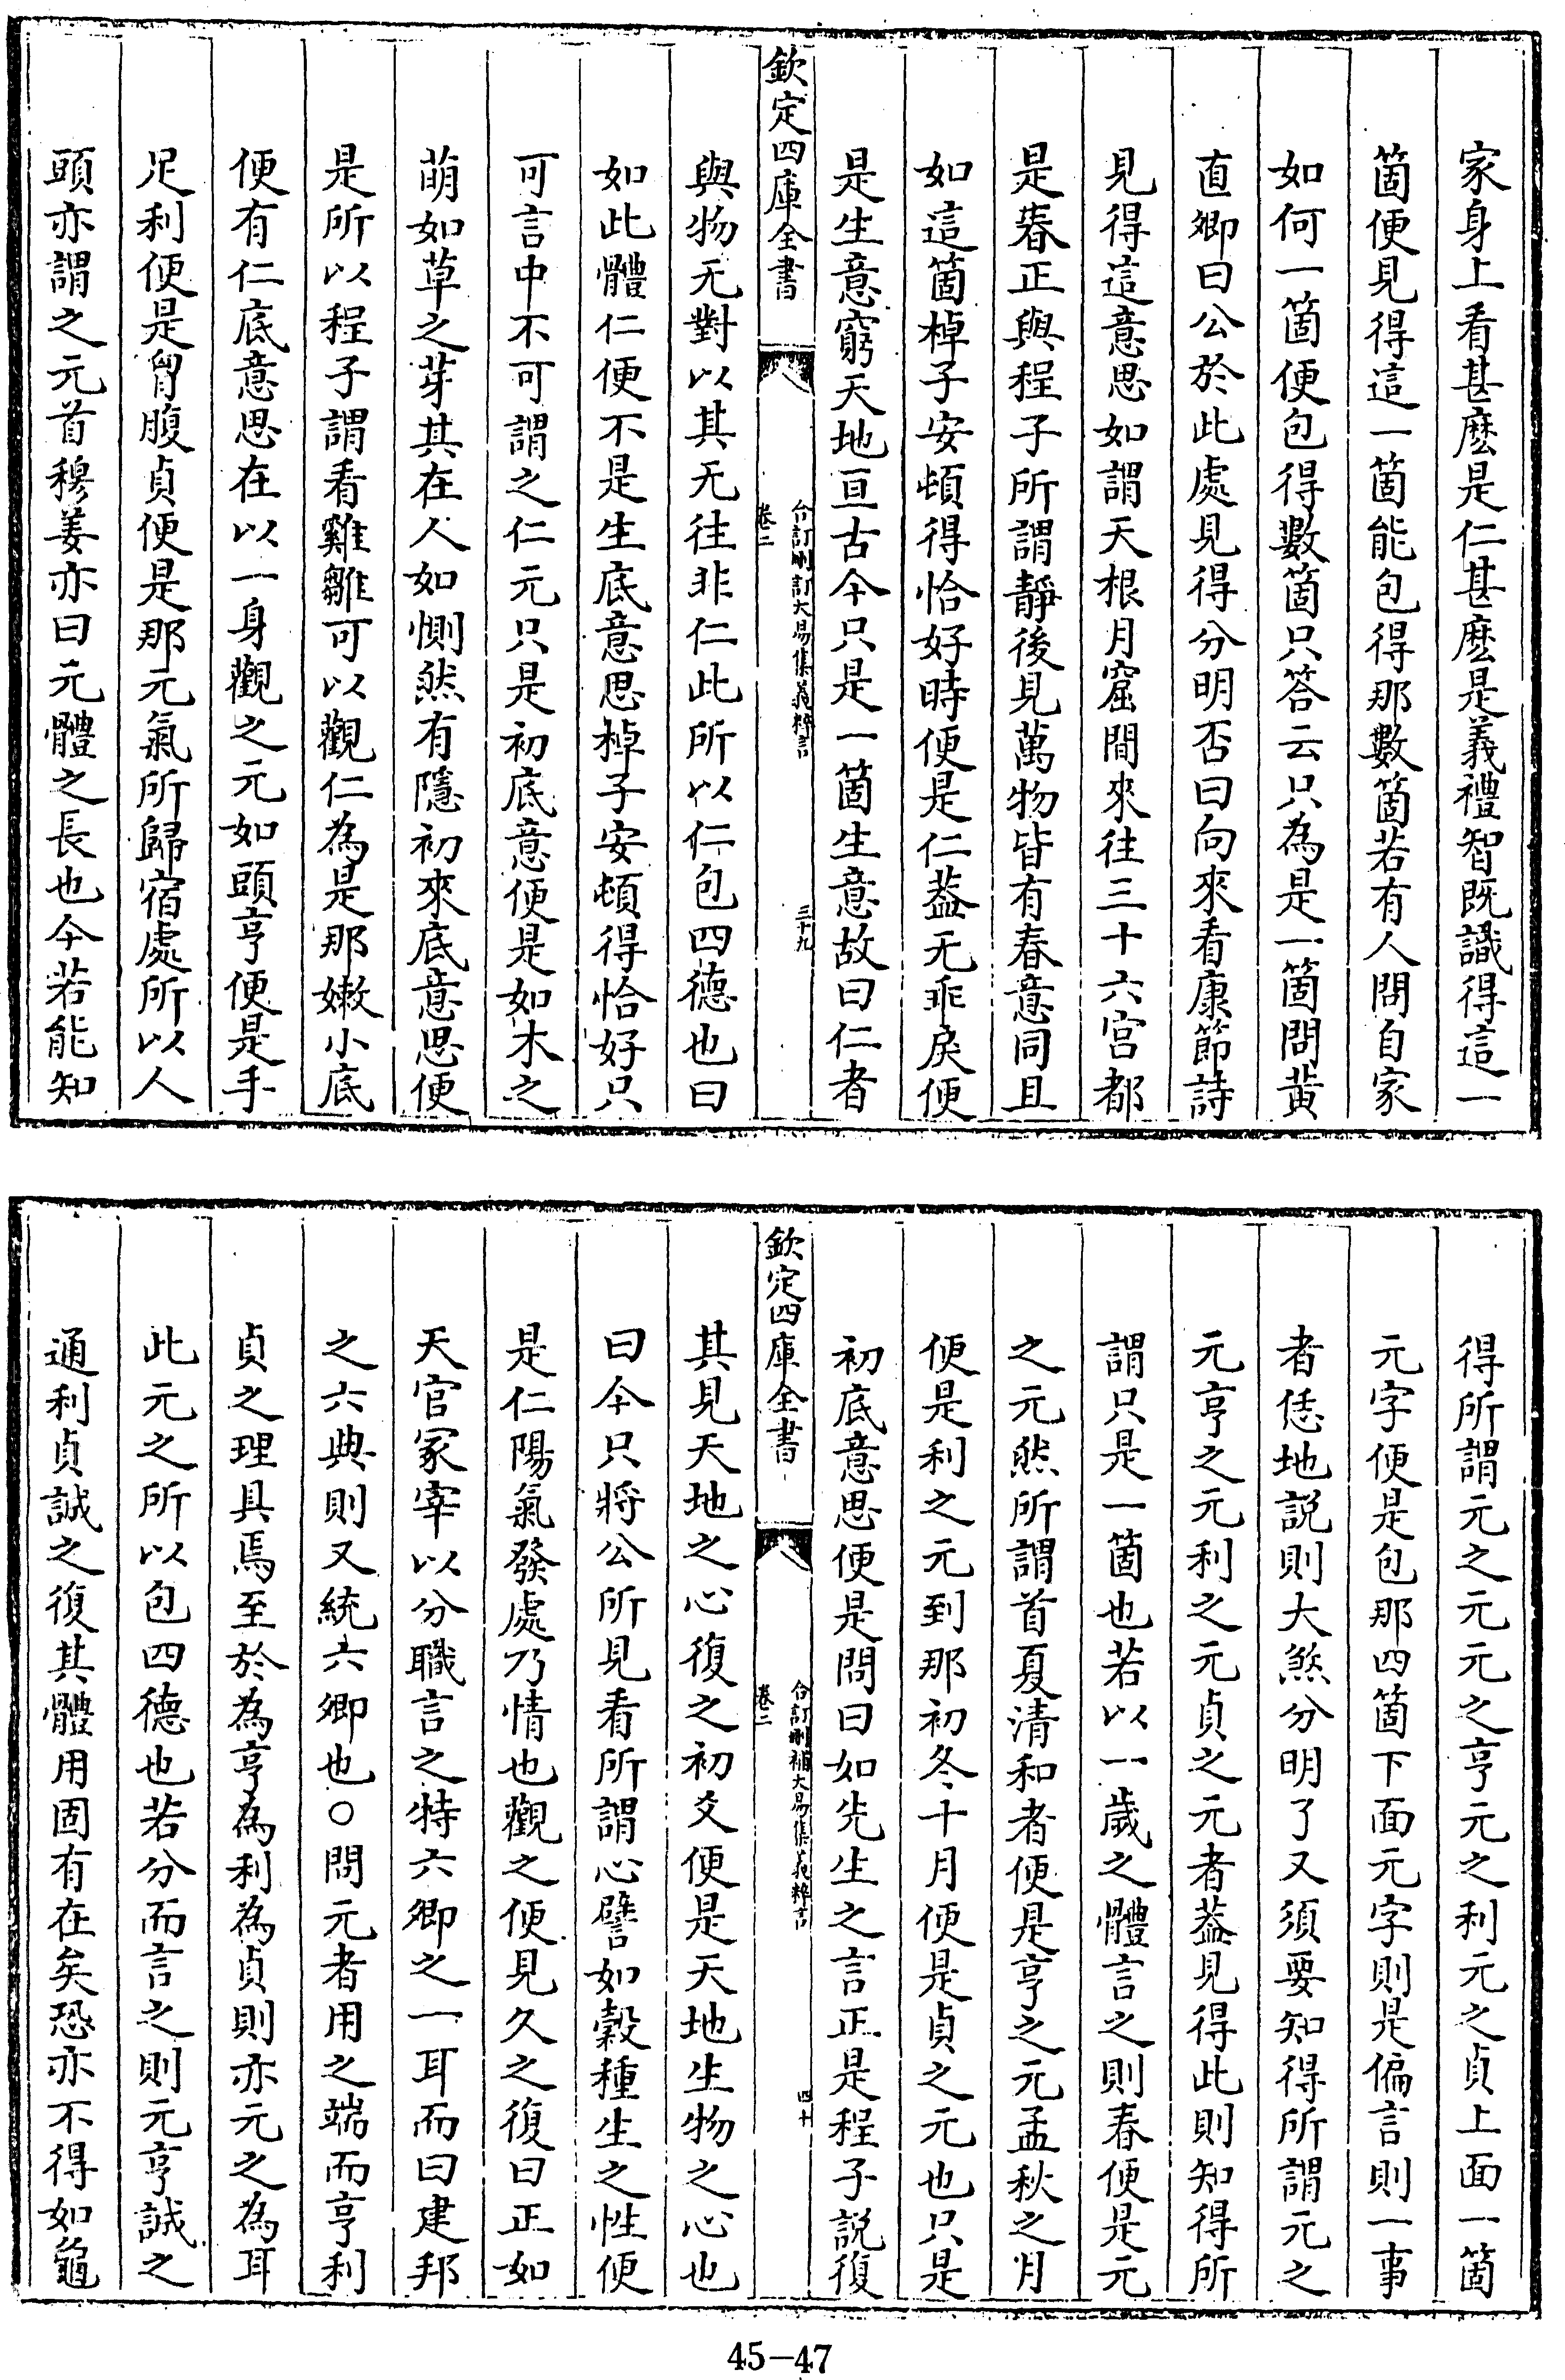 家身上看甚麽是仁甚麽是義禮智既識得這一
箇便見得這一箇能包得那數箇若有人問自家
如何一箇便包得數箇只答云只為是一箇問黄
直卿曰公於此處見得分明否曰向來看康節詩
見得這意思如謂天根月窟間來往三十六宫都
是春正與程子所謂靜後見萬物皆有春意同且
如這箇棹子安頓得恰好時便是仁葢无乖戾便
是生意窮天地亘古今只是一箇生意故曰仁者
欽定四庫全書
合訂刪訂大易集義粹言
卷二
三十九
與物无對以其无往非仁此所以仁包四德也曰
如此體仁便不是生底意思棹子安頓得恰好只
可言中不可謂之仁元只是初底意便是如木之
萌如草之芽其在人如惻然有隱初來底意思便
是所以程子謂看雞雛可以觀仁為是那嫩小底
便有仁底意思在以一身觀之元如頭亨便是手
足利便是胷腹貞便是那元氣所歸宿處所以人
頭亦謂之元首穆姜亦曰元體之長也今若能知
得所謂元之元元之亨元之利元之貞上面一箇
元字便是包那四箇下面元字則是偏言則一事
者恁地説則大煞分明了又須要知得所謂元之
元亨之元利之元貞之元者葢見得此則知得所
謂只是一箇也若以一歲之體言之則春便是元
之元然所謂首夏清和者便是亨之元孟秋之月
便是利之元到那初冬十月便是貞之元也只是
初底意思便是問曰如先生之言正是程子説復
欽定四庫全書
合訂刪補大易集義粹言
卷二
四十
其見天地之心復之初爻便是天地生物之心也
曰今只將公所見看所謂心譬如穀種生之性便
是仁陽氣發處乃情也觀之便見久之復曰正如
天官冢宰以分職言之特六卿之一耳而曰建邦
之六典則又統六卿也○問元者用之端而亨利
貞之理具焉至於為亨為利為貞則亦元之為耳
此元之所以包四德也若分而言之則元亨誠之
通利貞誠之復其體用固有在矣恐亦不得如龜
45-47